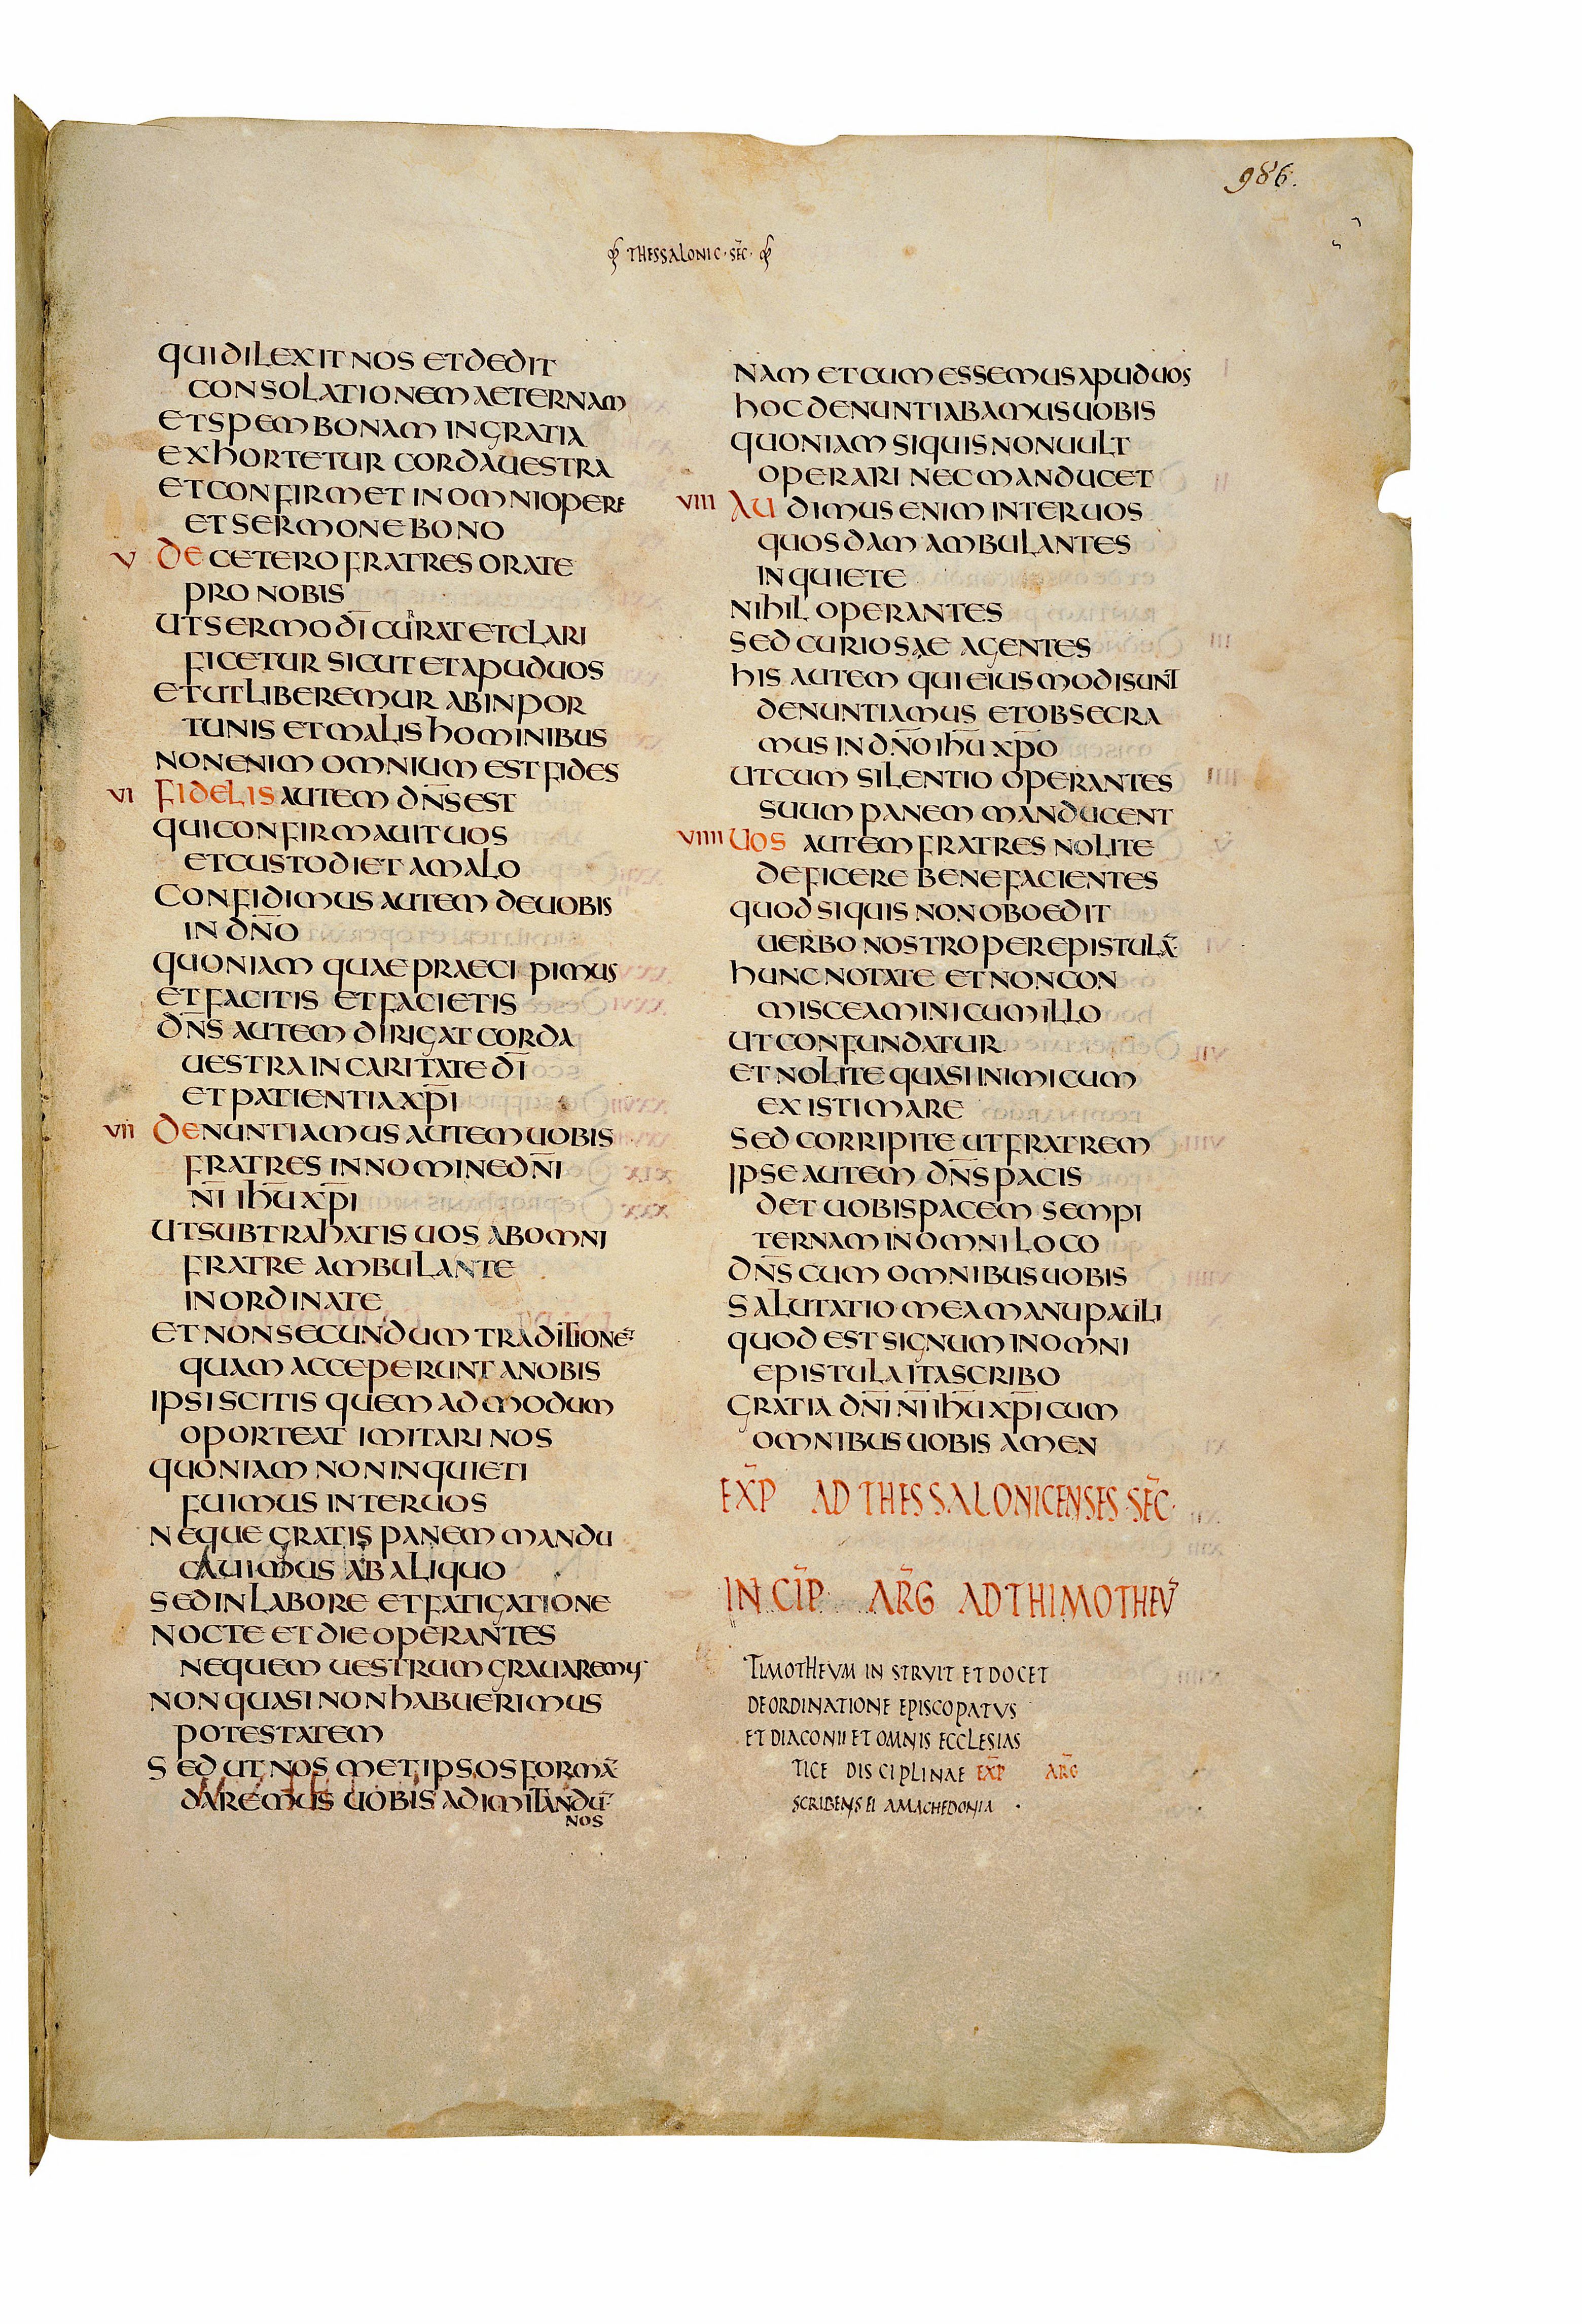 986.
THESSALONIC·SEC·
QUI DILEXIT NOS ET DEDIT
CONSOLATIONEM AETERNAM
ET SPEM BONAM IN GRATIA
EXHORTETUR CORDA UESTRA
ET CONFIRMET IN OMNI OPERE
ET SERMONE BONO
V DE CETERO FRATRES ORATE
PRO NOBIS
UT SERMO D̅I̅ CURRAT ET CLARI
FICETUR SICUT ET APUD UOS
ET UT LIBEREMUR AB INPOR
TUNIS ET MALIS HOMINIBUS
NON ENIM OMNIUM EST FIDES
VI FIDELIS AUTEM D̅N̅S̅ EST
QUI CONFIRMAUIT UOS
ET CUSTODIET A MALO
CONFIDIMUS AUTEM DE UOBIS
IN D̅N̅O̅
QUONIAM QUAE PRAECIPIMUS
ET FACITIS ET FACIETIS
D̅N̅S̅ AUTEM DIRIGAT CORDA
UESTRA IN CARITATE D̅I̅
ET PATIENTIA X̅P̅I̅
VII DENUNTIAMUS AUTEM UOBIS
FRATRES IN NOMINE D̅N̅I̅
N̅I̅ I̅H̅U̅ X̅P̅I̅
UT SUBTRAHATIS UOS AB OMNI
FRATRE AMBULANTE
INORDINATE
ET NON SECUNDUM TRADITIONE̅
QUAM ACCEPERUNT A NOBIS
IPSI SCITIS QUEMADMODUM
OPORTEAT IMITARI NOS
QUONIAM NON INQUIETI
FUIMUS INTER UOS
NEQUE GRATIS PANEM MANDU
CAUIMUS AB ALIQUO
SED IN LABORE ET FATIGATIONE
NOCTE ET DIE OPERANTES
NE QUEM UESTRUM GRAUAREMUS
NON QUASI NON HABUERIMUS
POTESTATEM
SED UT NOSMET IPSOS FORMA̅
DAREMUS UOBIS AD IMITANDU̅
NOS
NAM ET CUM ESSEMUS APUD UOS
HOC DENUNTIABAMUS UOBIS
QUONIAM SI QUIS NON UULT
OPERARI NEC MANDUCET
VIII AUDIMUS ENIM INTER UOS
QUOSDAM AMBULANTES
INQUIETE
NIHIL OPERANTES
SED CURIOSAE AGENTES
HIS AUTEM QUI EIUSMODI SUNT
DENUNTIAMUS ET OBSECRA
MUS IN D̅N̅O̅ I̅H̅U̅ X̅P̅O̅
UT CUM SILENTIO OPERANTES
SUUM PANEM MANDUCENT
VIIII UOS AUTEM FRATRES NOLITE
DEFICERE BENEFACIENTES
QUOD SI QUIS NON OBOEDIT
UERBO NOSTRO PER EPISTULA̅
HUNC NOTATE ET NON CON
MISCEAMINI CUM ILLO
UT CONFUNDATUR
ET NOLITE QUASI INIMICUM
EXISTIMARE
SED CORRIPITE UT FRATREM
IPSE AUTEM D̅N̅S̅ PACIS
DET UOBIS PACEM SEMPI
TERNAM IN OMNI LOCO
D̅N̅S̅ CUM OMNIBUS UOBIS
SALUTATIO MEA MANU PAULI
QUOD EST SIGNUM IN OMNI
EPISTULA ITA SCRIBO
GRATIA D̅N̅I̅ N̅I̅ I̅H̅U̅ X̅P̅I̅ CUM
OMNIBUS UOBIS AMEN
EXP AD THESSALONICENSES·SEC·
INCIP ARG AD THIMOTHEV̅
TIMOTHEVM INSTRVIT ET DOCET
DE ORDINATIONE EPISCOPATVS
ET DIACONII ET OMNIS ECCLESIAS
TICE DISCIPLINAE EXP ARG
SCRIBENS EI A MACHEDONIA ·